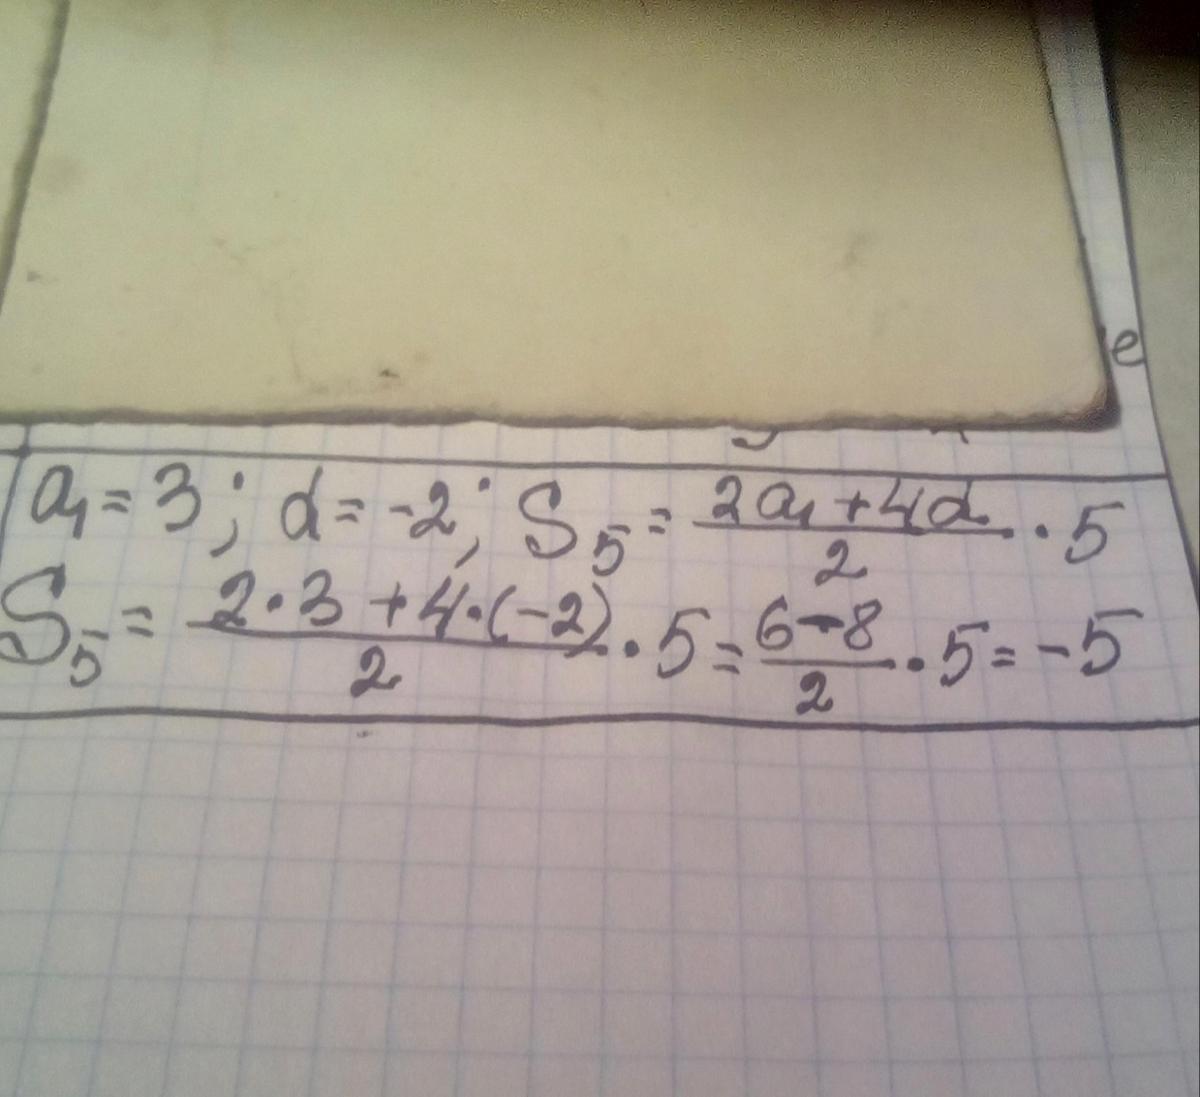 e
a₁ = 3; d = -2; S₅ = (2a₁ + 4d)/2 · 5
S₅ = (2·3 + 4·(-2))/2 · 5 = (6-8)/2 · 5 = -5